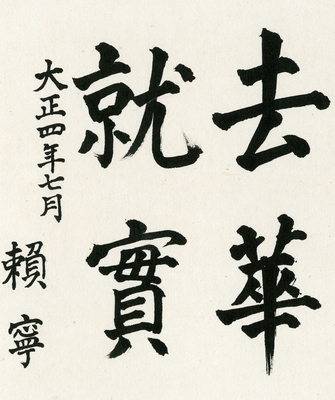 去華
就實
大正四年七月
賴寧